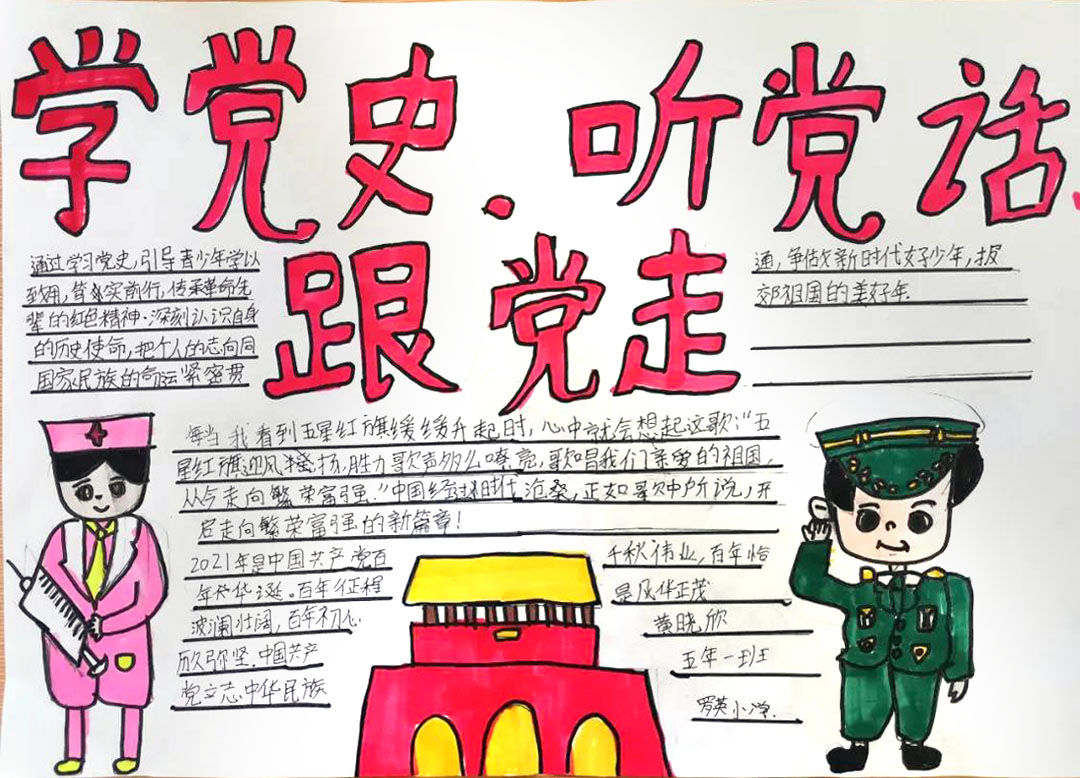 学党史、听党话、
跟党走
通过学习党史,引导青少年学以
致用,笃实前行,传承革命先
辈的红色精神.深刻认识自身
的历史使命,把个人的志向同
国家民族的命运紧密贯
通,争做新时代好少年,报
效祖国的美好年
每当我看到五星红旗缓缓升起时,心中就会想起这歌:“五
星红旗迎风飘扬,胜力歌声多么嘹亮,歌唱我们亲爱的祖国,
从今走向繁荣富强.”中国经过时代沧桑,正如歌中所说,开
启走向繁荣富强的新篇章!
2021年是中国共产党百
年华诞。百年征程
波澜壮阔,百年初心
历久弥坚.中国共产
党立志中华民族
千秋伟业,百年恰
是风华正茂
黄晓欣
五年一班
罗英小学.